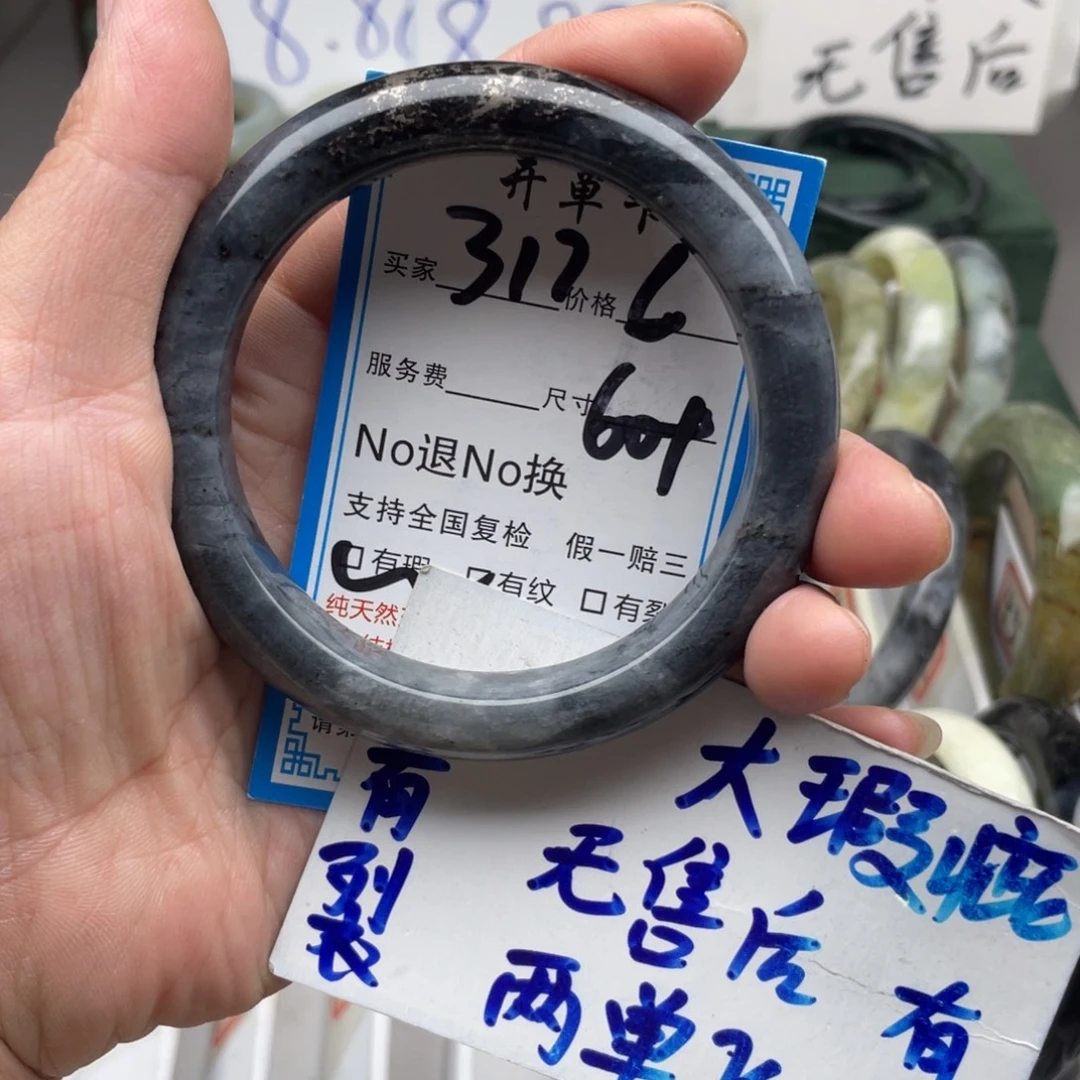 8.818
无售后
开单卡
买家 317 价格 6
服务费 尺寸 601
No退No换
支持全国复检 假一赔三
有瑕 有纹 有裂
纯天然
有裂
大瑕疵
无售后 有
两单